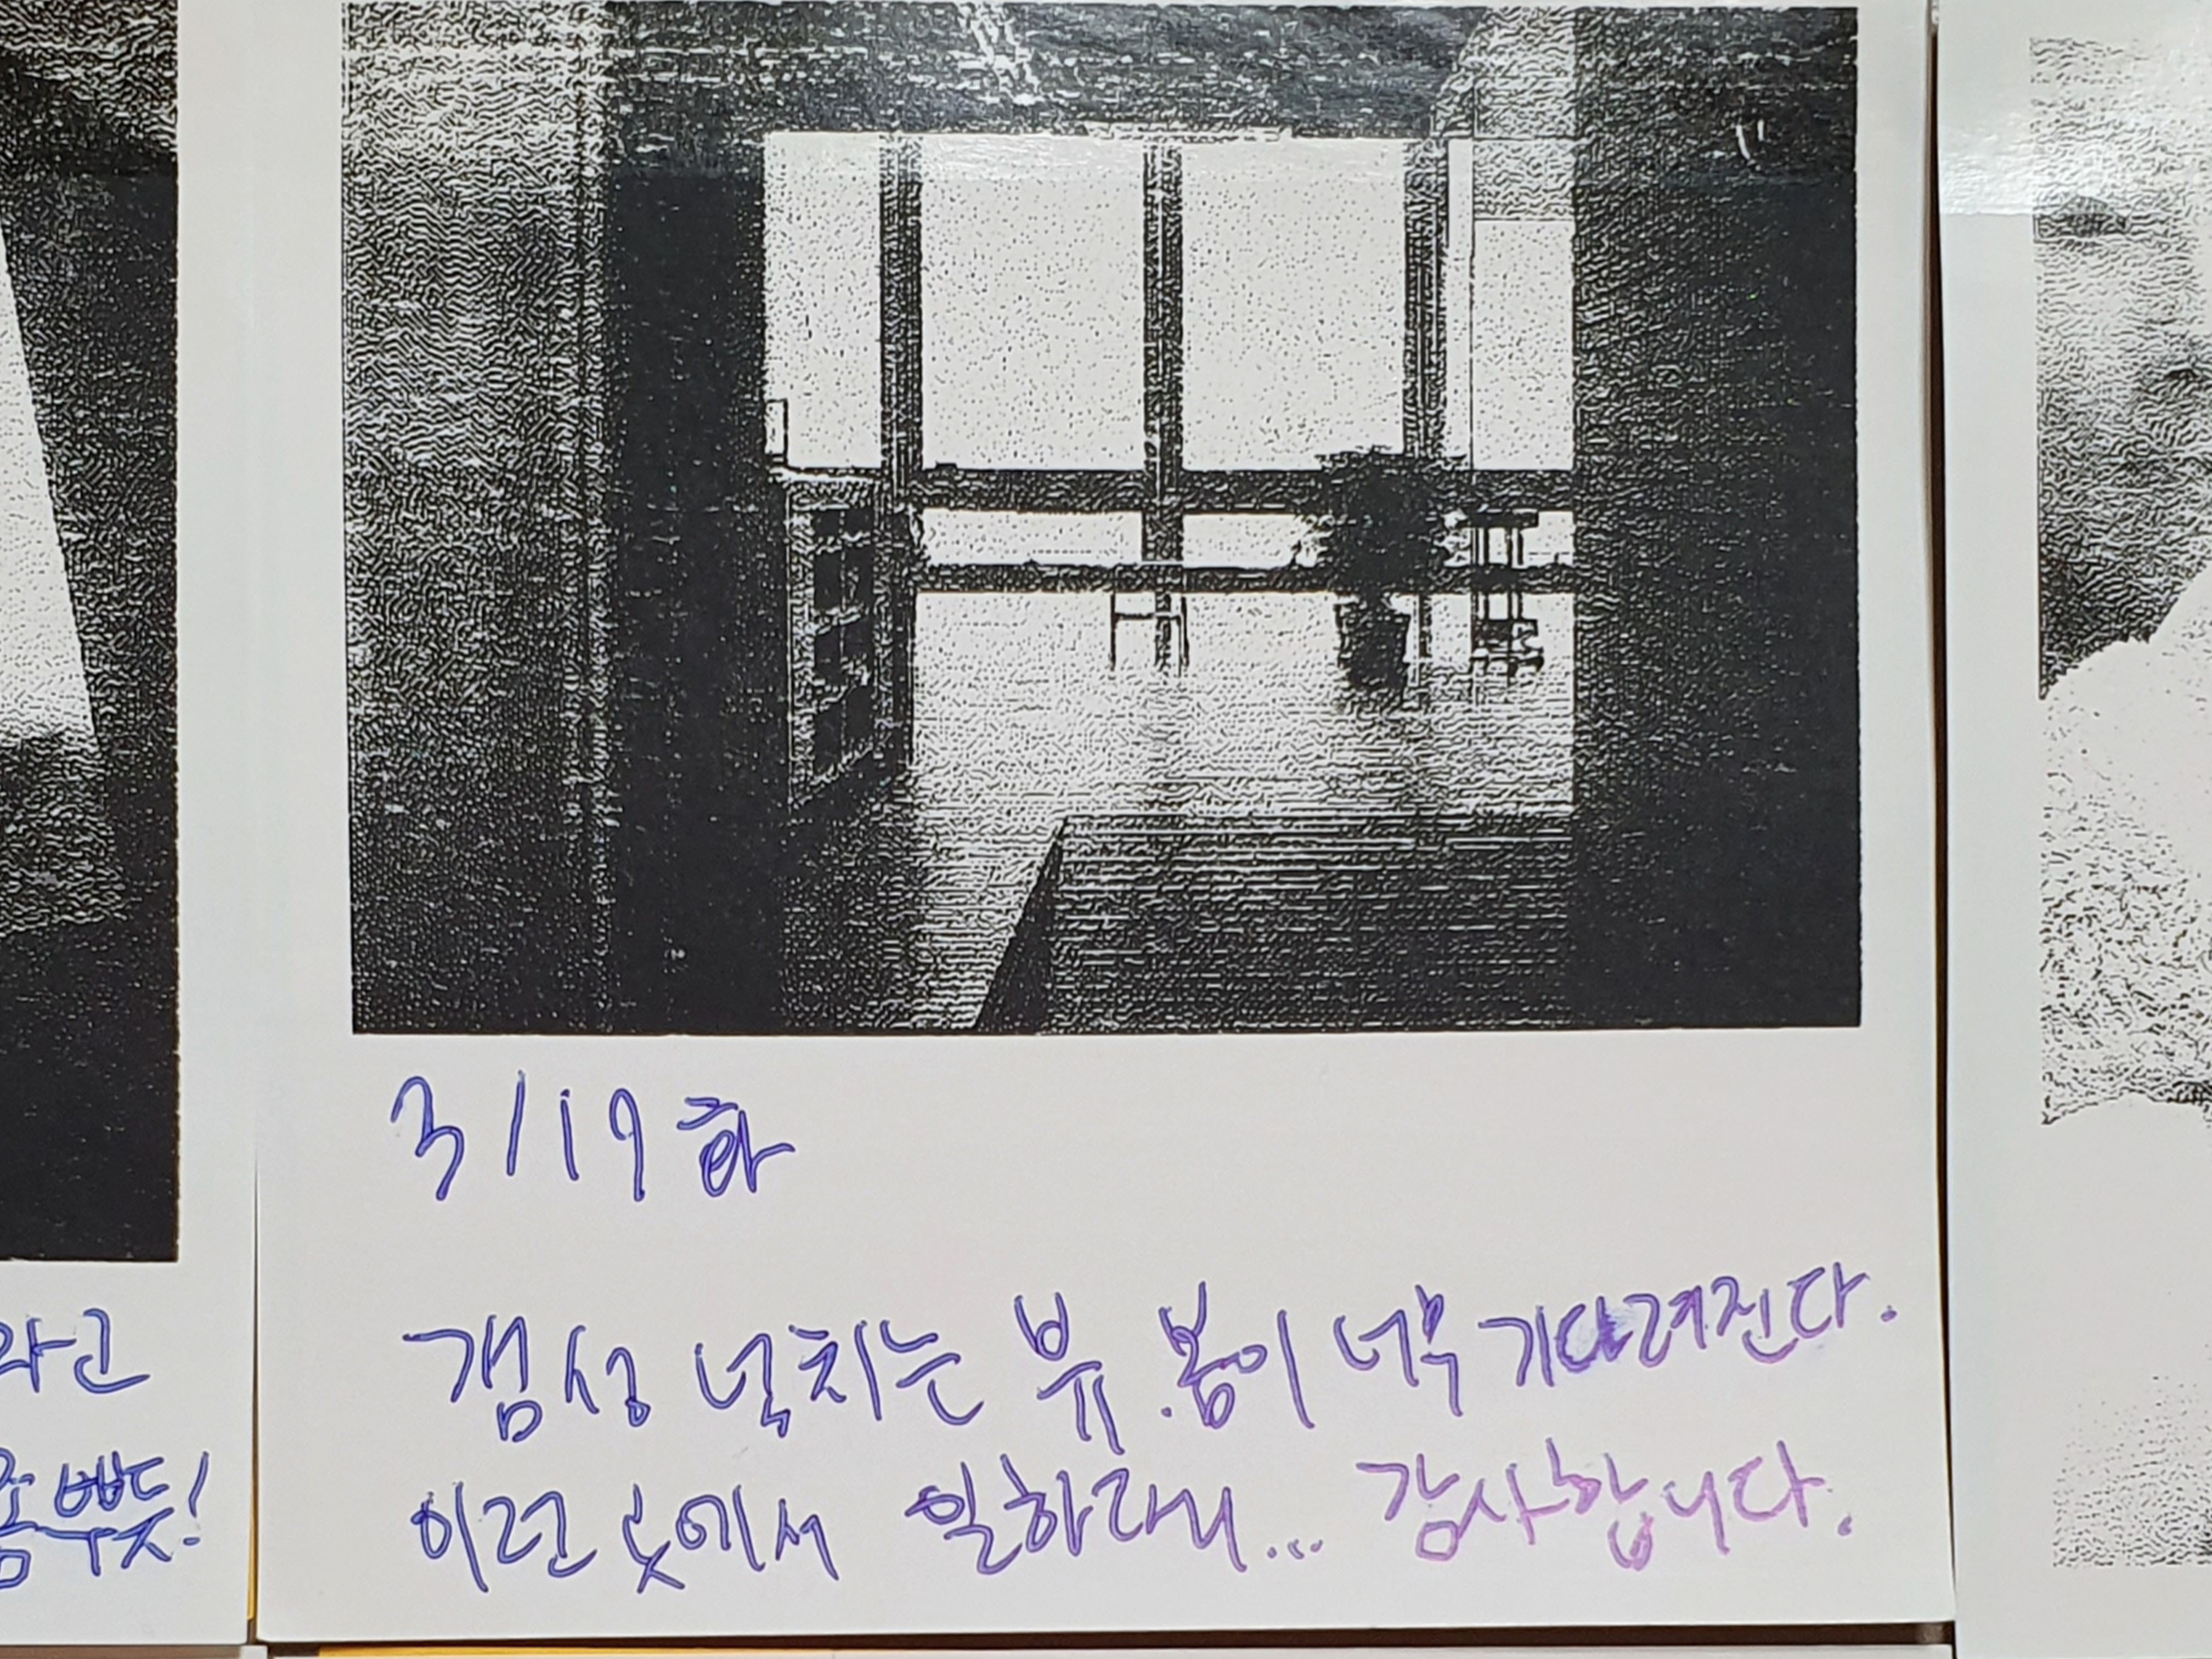 라고
뿌듯!
3/19 화
갬성 넘치는 뷰. 봄이 너무 기다려진다.
이런 곳에서 일하다니... 감사합니다.